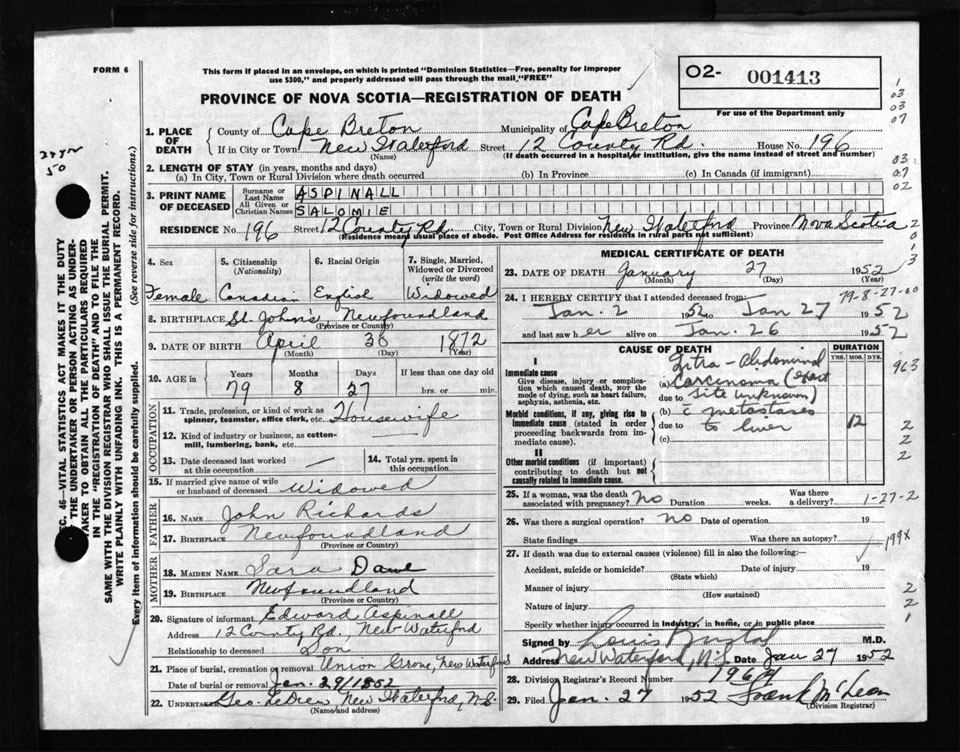 FORM 6
This form if placed in an envelope, on which is printed "Dominion Statistics—Free, penalty for improper
use $300," and properly addressed will pass through the mail "FREE"
O2- 001413
PROVINCE OF NOVA SCOTIA—REGISTRATION OF DEATH
For use of the Department only
1. PLACE OF DEATH
County of Cape Breton Municipality of Cape Breton
If in City or Town New Waterford Street 12 County Rd. House No. 196
(Name) (If death occurred in a hospital or institution, give the name instead of street and number)
2. LENGTH OF STAY (in years, months and days)
(a) In City, Town or Rural Division where death occurred (b) In Province (c) In Canada (if immigrant)
3. PRINT NAME OF DECEASED
Surname or Last Name ASPINALL
All Given or Christian Names SALOMIE
RESIDENCE No. 196 Street 12 County Rd. City, Town or Rural Division New Waterford Province Nova Scotia
(Residence means usual place of abode. Post Office Address for residents in rural parts not sufficient)
4. Sex
Female
5. Citizenship
(Nationality)
Canadian
6. Racial Origin
English
7. Single, Married,
Widowed or Divorced
(write the word)
Widowed
8. BIRTHPLACE St. John's Newfoundland
(Province or County)
9. DATE OF BIRTH April 30 1872
(Month) (Day) (Year)
10. AGE in Years Months Days If less than one day old
79 8 27 hrs. or min.
OCCUPATION
11. Trade, profession, or kind of work as
spinner, teamster, office clerk, etc. Housewife
12. Kind of industry or business, as cotton-
mill, lumbering, bank, etc. —
13. Date deceased last worked
at this occupation —
14. Total yrs. spent in
this occupation
15. If married give name of wife
or husband of deceased Widowed
FATHER
16. NAME John Richards
17. BIRTHPLACE Newfoundland
(Province or Country)
MOTHER
18. MAIDEN NAME Sara
19. BIRTHPLACE Newfoundland
(Province or Country)
20. Signature of informant Edward Aspinall
Address 12 County Rd., New Waterford
Relationship to deceased Son
21. Place of burial, cremation or removal Union Grove, New Waterford
Date of burial or removal Jan. 29/1852
22. UNDERTAKER Geo. LeDrew New Waterford, N.S.
(Name and address)
MEDICAL CERTIFICATE OF DEATH
23. DATE OF DEATH January 27 1952
(Month) (Day) (Year)
24. I HEREBY CERTIFY that I attended deceased from:
79-8-27-00
Jan. 2 1952 to Jan 27 1952
and last saw her alive on Jan. 26 1952
CAUSE OF DEATH
DURATION
YRS. MOS. DYS.
I
Immediate cause
Give disease, injury or complica-
tion which caused death, NOT the
mode of dying, such as heart failure,
asphyxia, asthenia, etc.
Morbid conditions, if any, giving rise to
immediate cause (stated in order
proceeding backwards from im-
mediate cause).
II
Other morbid conditions (if important)
contributing to death but not
causally related to immediate cause.
Intra-Abdominal
(a) Carcinoma (exact
due to site unknown)
(b) c metastases
due to to liver
12
(c)
25. If a woman, was the death
associated with pregnancy? No Duration weeks. Was there a
delivery? 1-27-2
26. Was there a surgical operation? No Date of operation 19
State findings Was there an autopsy? 199X
27. If death was due to external causes (violence) fill in also the following:—
Accident, suicide or homicide? Date of injury 19
(State which)
Manner of injury
(How sustained)
Nature of injury
Specify whether injury occurred in industry, in home, or in public place
Signed by Louis M.D.
Address New Waterford, N.S. Date Jan 27 1952
28. Division Registrar's Record Number 1964
29. Filed Jan. 27 1952 Frank McLean
(Division Registrar)
SEC. 46—VITAL STATISTICS ACT MAKES IT THE DUTY
OF THE UNDERTAKER OR PERSON ACTING AS UNDER-
TAKER TO OBTAIN ALL THE PARTICULARS REQUIRED
IN THE "REGISTRATION OF DEATH" AND TO FILE THE
SAME WITH THE DIVISION REGISTRAR WHO SHALL ISSUE THE BURIAL PERMIT.
WRITE PLAINLY WITH UNFADING INK. THIS IS A PERMANENT RECORD.
Every item of information should be carefully supplied. (See reverse side for instructions.)
1
03
03
07
03
07
02
2
0
1
3
963
2
2
2
2
2
1